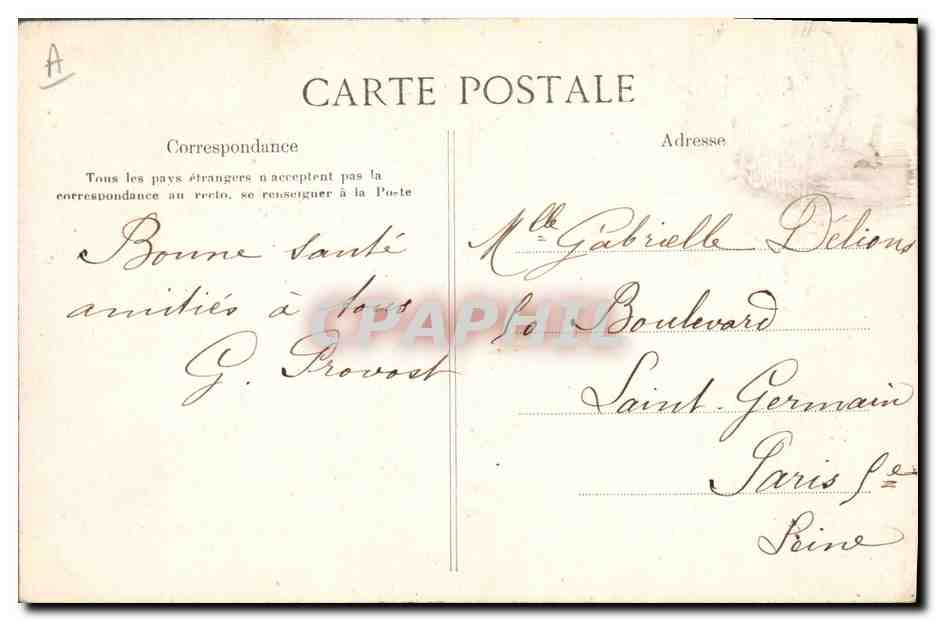 A
CARTE POSTALE
Correspondance
Tous les pays étrangers n'acceptent pas la
correspondance au recto, se renseigner à la Poste
Bonne santé
amitiés à tous
G. Provost
Adresse
Mlle Gabrielle Délions
50 Boulevard
Saint-Germain
Paris 5e
Seine
CPAPHIL